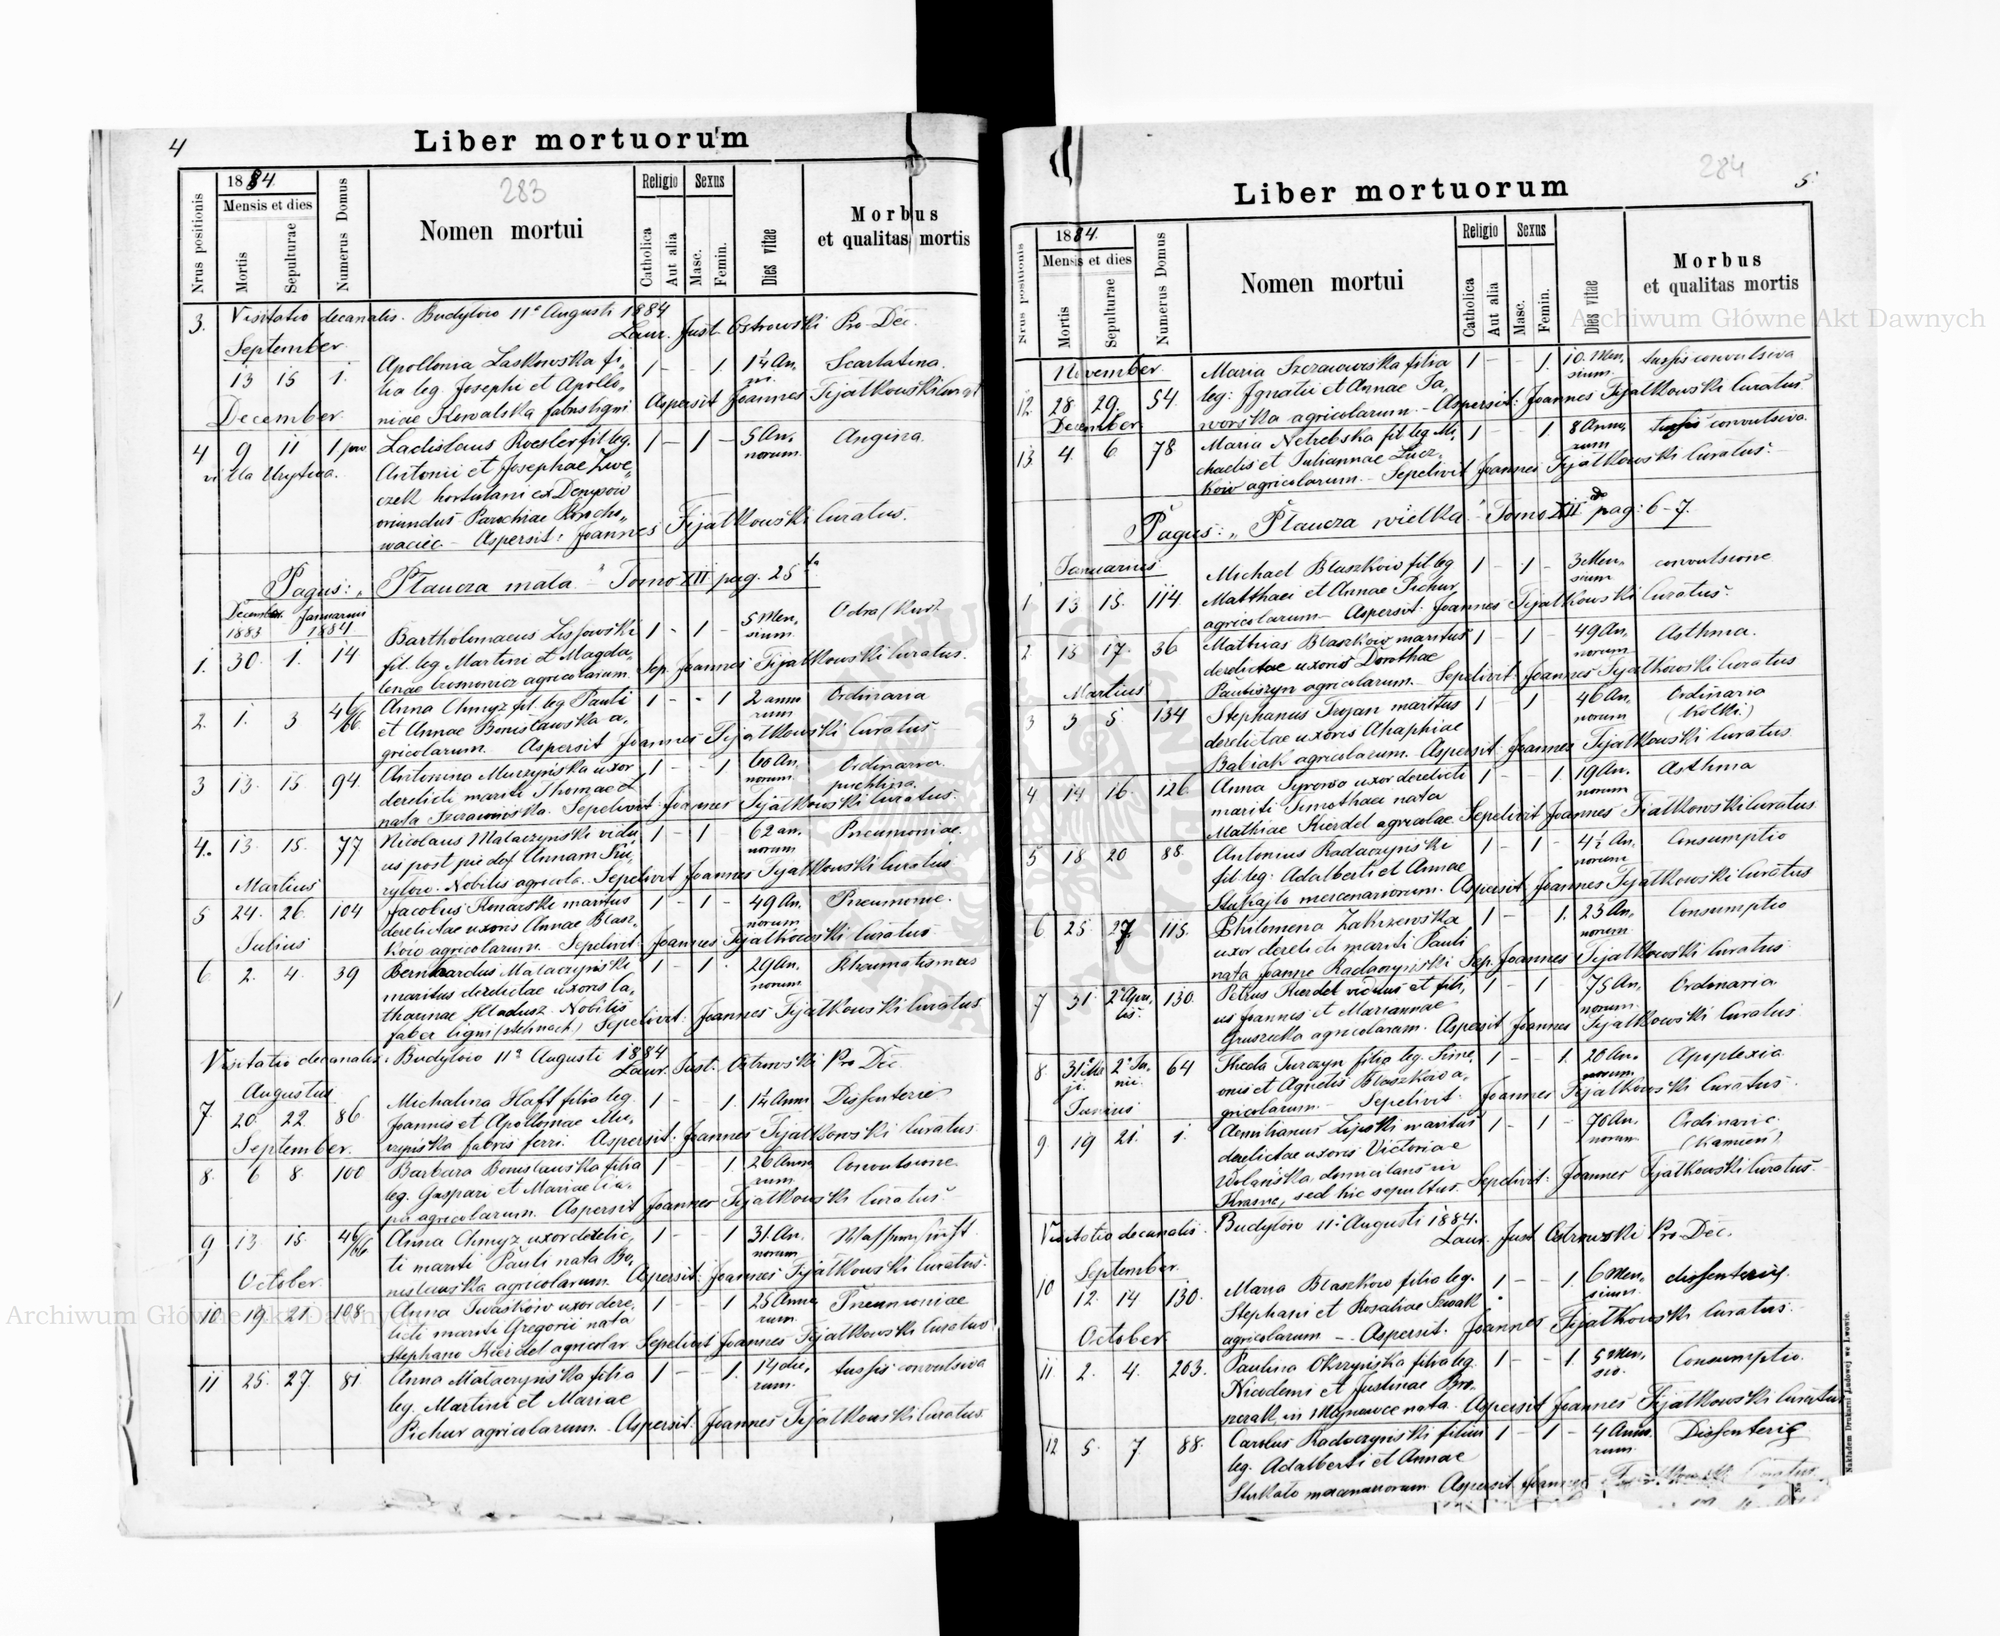 4
Liber mortuorum
283
Nrus positionis
1884.
Mensis et dies
Mortis
Sepulturae
Numerus Domus
Nomen mortui
Religio
Catholica
Aut alia
Sexus
Masc.
Femin.
Dies vitae
Morbus
et qualitas mortis
3. Visitatio decanalis. Budyłow 11ª Augusti 1884
Laur. Just. Ostrowski Pro-Dec.
September
13 15 1. Apollonia Laskowska fi- 1 - - 1. 1¼ An, Scarlatina.
lia leg. Josephi et Apollo-
niae Kowalska fabri ligni Aspersit Joannes Fijałkowski
December
4 9 11 1 Ladislaus Roesler fil leg. 1 - 1 - 5 An, Angina.
norum.
Antonii et
czek hortulani ex Denysow
oriundus Parochiae
Aspersit: Joannes Fijałkowski Curatus.
Pagus: „Płaucza mała" Tomo XII pag. 25
Januarius
1883 1884
1. 30. 1. 14 Bartholomaeus 1 - 1 - 5 Men, Odra
sium.
fil. leg Martini et Magda-
lenae agricolarum. Sep. Joannes Fijałkowski Curatus.
2. 1. 3 46/66 Anna Chmyz fil. leg Pauli 1 - - 1 2 anno Ordinaria
rum
et Annae Bonisławska a-
gricolarum. Aspersit Joannes Fijałkowski Curatus
3 13. 15 94 Antonina Murzyńska uxor 1 - - 1 60 An, Ordinaria
norum puchlina.
derelicti mariti Thomae d
nata Sepelivit: Joannes Fijałkowski Curatus.
4. 13. 15. 77 Nicolaus Małaczyński vidu 1 - 1 62 an. Pneumoniae.
norum
us post pie def Annam
Nobilis agricola. Sepelivit Joannes Fijałkowski Curatus
Martius
5 24. 26. 104 Jacobus Konarski maritus 1 - 1 - 49 An, Pneumonie.
norum
derelictae uxoris Annae Blasz-
kow agricolarum. Sepelivit: Joannes Fijałkowski Curatus
Julius
6 2. 4. 39 Bernhardus Małaczyński 1 - 1 29 An, Rheumatismus
norum
maritus derelictae uxoris Ca-
tharinae Hładusz. Nobilis
faber ligni (stelmach) Sepelivit: Joannes Fijałkowski Curatus
Visitatio decanalis: Budyłow 11ª Augusti 1884
Laur. Just. Ostrowski Pro Dec.
Augustus
7 20. 22. 86 Michalina Haft filia leg. 1 - - 1. 1¼ Ann Dissenterie
Joannis et Apolloniae Mu-
rzyńska fabris ferri. Aspersit: Joannes Fijałkowski Curatus
September
8. 6 8. 100 Barbara Bonisławska filia 1 - - 1. 26 Anno Convulsione
rum.
leg. Gaspari et Mariae
agricolarum. Aspersit Joannes Fijałkowski Curatus
9 13. 15. 46/66 Anna Chmyz uxor derelic- 1 - - 1 31. An.
norum
ti mariti Pauli nata Bo-
nisławska agricolarum Aspersit: Joannes Fijałkowski Curatus.
October
10 19. 21. 108. Anna Iwaskow uxor dere- 1 - - 1 25 Anno Pneumoniae
rum.
licti mariti Gregorii nata
Stephano Kierdel agricolar Sepelivit Joannes Fijałkowski Curatus
11 25. 27. 81. Anna Małaczyńska filia 1 - - 1. 14 die, tussis convulsiva
rum.
leg. Martini et Mariae
Pichur agricolarum. Aspersit: Joannes Fijałkowski Curatus.
284
5.
Liber mortuorum
Nrus positionis
1884.
Mensis et dies
Mortis
Sepulturae
Numerus Domus
Nomen mortui
Religio
Catholica
Aut alia
Sexus
Masc.
Femin.
Dies vitae
Morbus
et qualitas mortis
November
12. 28 29. 54. Maria Szczawińska filia 1 - - 1. 10. Men, tussis convulsiva
sium.
leg: Ignatii et Annae Ja-
worska agricolarum. - Aspersit: Joannes Fijałkowski Curatus.
December
13. 4. 6 78 Maria Netrebska fil leg Mi, 1 - - 1. 8 Anno, tussis convulsiva.
rum
chaelis et Juliannae
agricolarum. - Sepelivit Joannes Fijałkowski Curatus.
Pagus: „Płaucza wielka" Tomo XII pag: 6-7.
Januarius
1 13 15. 114. Michael Blaszkow fil leg 1 - 1 - 3 Men, convulsione
sium
Matthaei et Annae Pichur
agricolarum - Aspersit: Joannes Fijałkowski Curatus.
2 15 17. 36 Mathias Blaszkow maritus 1 - 1 - 49 An, Asthma.
norum
derelictae uxoris Dorothae
agricolarum. Sepelivit: Joannes Fijałkowski Curatus
Martius
3 3 5. 134 Stephanus Trojan maritus 1 - 1 46 An, Ordinaria
norum (kolki.)
derelictae uxoris Ahaphiae
Babiak agricolarum. Aspersit: Joannes Fijałkowski Curatus.
4 14 16. 126 Anna uxor derelicti 1 - - 1. 19 An. Asthma
norum
mariti Timothaei nata
Mathiae Kierdel agricolae Sepelivit Joannes Fijałkowski Curatus.
5 18 20 88. Antonius Radaczyński 1 - 1 - 4½ An, Consumptio
norum
fil. leg: Adalberti et Annae
mercenariorum. Aspersit: Joannes Fijałkowski Curatus
6 25 27 115. Philomena Zakrzewska 1 - - 1. 23 An. Consumptio
norum
uxor derelicti mariti Pauli
nata Joanne Radaczyński Sep. Joannes Fijałkowski Curatus
7 31. 2ª Apri- 130. Petrus Kierdel viduus et fili- 1 - 1 - 75 An, Ordinaria.
lis. norum.
us Joannis et Mariannae
Gruszecka agricolarum. Aspersit Joannes Fijałkowski Curatus.
8 31ª Ma 2ª Ju- 64 Thecla Turczyn filia leg. Sime- 1 - - 1. 20 An. Apoplexia
ji. nii. norum
onis et Agnetis Blaszkow a-
gricolarum. - Sepelivit: Joannes Fijałkowski Curatus.
Junius
9 19 21. 1. Aemilianus Lipski maritus 1 - 1 - 70 An, Ordinaria.
norum (kamień)
derelictae uxoris Victoriae
Wolańska in
Krasne, sed hic sepultus. Sepelivit: Joannes Fijałkowski Curatus.
Visitatio decanalis. Budyłow 11ª Augusti 1884.
Laur. Just. Ostrowski Pro-Dec.
September.
10 12. 14 130. Maria Blaszkow filia leg. 1 - - 1. 6 Men, dissenterią.
sium.
Stephani et Rosaliae
agricolarum - Aspersit. Joannes Fijałkowski Curatus.
October
11. 2. 4. 203. Paulina Okrzyńska filia leg. 1 - - 1. 5 Men, Consumptio.
Nicodemi et Justinae
in Młynowce nata. Aspersit Joannes Fijałkowski Curatus
12 5. 7 88. Carolus Radaczyński filius 1 - 1 - 4 Anno, Dissenterią
rum.
leg. Adalberti et Annae
mercenariorum. Aspersit Joannes
Nakładem Drukarni Ludowej we Lwowie.
Archiwum Główne Akt Dawnych
Archiwum Główne Akt Dawnych